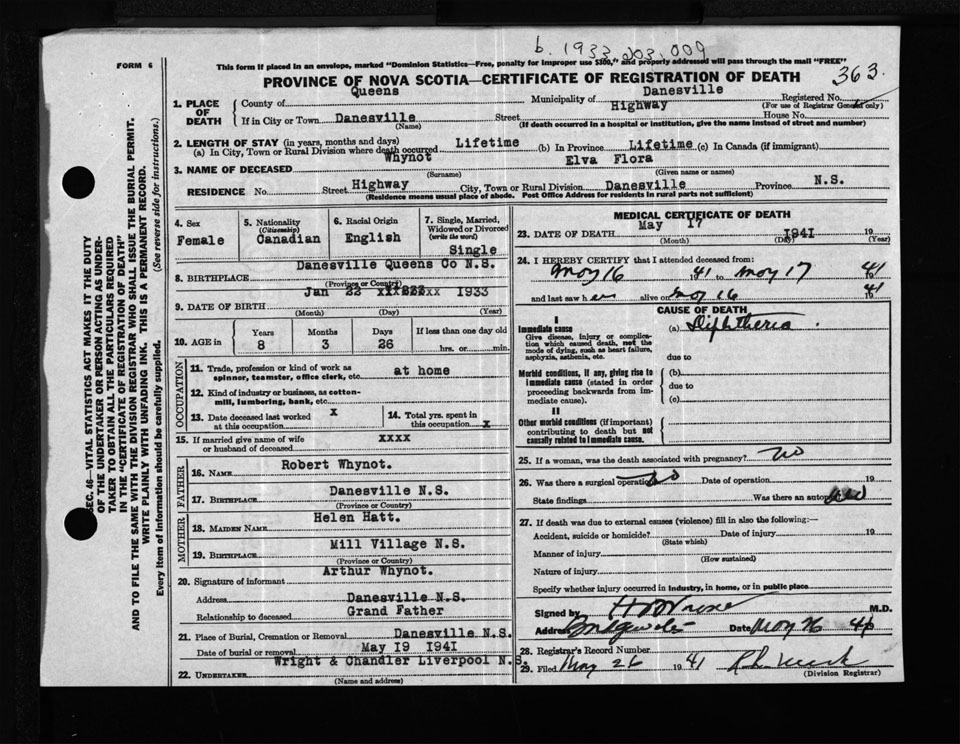 b. 1933 203 009
FORM 6
This form if placed in an envelope, marked "Dominion Statistics—Free, penalty for improper use $300," and properly addressed will pass through the mail "FREE"
PROVINCE OF NOVA SCOTIA—CERTIFICATE OF REGISTRATION OF DEATH
363.
1. PLACE OF DEATH
County of Queens Municipality of Danesville Registered No.
(For use of Registrar General only)
If in City or Town Danesville Street Highway House No.
(Name) (If death occurred in a hospital or institution, give the name instead of street and number)
2. LENGTH OF STAY (in years, months and days)
(a) In City, Town or Rural Division where death occurred Lifetime (b) In Province Lifetime (c) In Canada (if immigrant)
3. NAME OF DECEASED Whynot Elva Flora
(Surname) (Given name or names)
RESIDENCE No. Street Highway City, Town or Rural Division Danesville Province N.S.
(Residence means usual place of abode. Post Office Address for residents in rural parts not sufficient)
4. Sex Female
5. Nationality (Citizenship) Canadian
6. Racial Origin English
7. Single, Married, Widowed or Divorced (write the word) Single
8. BIRTHPLACE Danesville Queens Co N.S.
(Province or Country)
9. DATE OF BIRTH Jan 22 1933
(Month) (Day) (Year)
10. AGE in Years Months Days If less than one day old
8 3 26 hrs. or min.
OCCUPATION
11. Trade, profession or kind of work as spinner, teamster, office clerk, etc. at home
12. Kind of industry or business, as cotton-mill, lumbering, bank, etc.
13. Date deceased last worked at this occupation x
14. Total yrs. spent in this occupation x
15. If married give name of wife or husband of deceased xxxx
FATHER
16. NAME Robert Whynot.
17. BIRTHPLACE Danesville N.S.
(Province or Country)
MOTHER
18. MAIDEN NAME Helen Hatt.
19. BIRTHPLACE Mill Village N.S.
(Province or Country)
20. Signature of informant Arthur Whynot.
Address Danesville N.S.
Relationship to deceased Grand Father
21. Place of Burial, Cremation or Removal Danesville N.S.
Date of burial or removal May 19 1941
22. UNDERTAKER Wright & Chandler Liverpool N.S.
(Name and address)
MEDICAL CERTIFICATE OF DEATH
23. DATE OF DEATH May 17 1941 19
(Month) (Day) (Year)
24. I HEREBY CERTIFY that I attended deceased from:
May 16 41 to May 17 41
and last saw her alive on May 16 41
CAUSE OF DEATH
I
Immediate cause
Give disease, injury or complication which caused death, not the mode of dying, such as heart failure, asphyxia, asthenia, etc.
(a) Diphtheria.
due to
Morbid conditions, if any, giving rise to immediate cause (stated in order proceeding backwards from immediate cause).
(b)
due to
(c)
II
Other morbid conditions (if important) contributing to death but not causally related to immediate cause.
25. If a woman, was the death associated with pregnancy? No
26. Was there a surgical operation No Date of operation 19
State findings Was there an autopsy
27. If death was due to external causes (violence) fill in also the following:—
Accident, suicide or homicide? Date of injury 19
(State which)
Manner of injury
(How sustained)
Nature of injury
Specify whether injury occurred in industry, in home, or in public place
Signed by M.D.
Address Bridgewater Date May 26 41
28. Registrar's Record Number
29. Filed May 26 1941
(Division Registrar)
SEC. 46—VITAL STATISTICS ACT MAKES IT THE DUTY
OF THE UNDERTAKER OR PERSON ACTING AS UNDER-
TAKER TO OBTAIN ALL THE PARTICULARS REQUIRED
IN THE "CERTIFICATE OF REGISTRATION OF DEATH"
AND TO FILE THE SAME WITH THE DIVISION REGISTRAR WHO SHALL ISSUE THE BURIAL PERMIT.
WRITE PLAINLY WITH UNFADING INK. THIS IS A PERMANENT RECORD.
Every item of information should be carefully supplied. (See reverse side for instructions.)